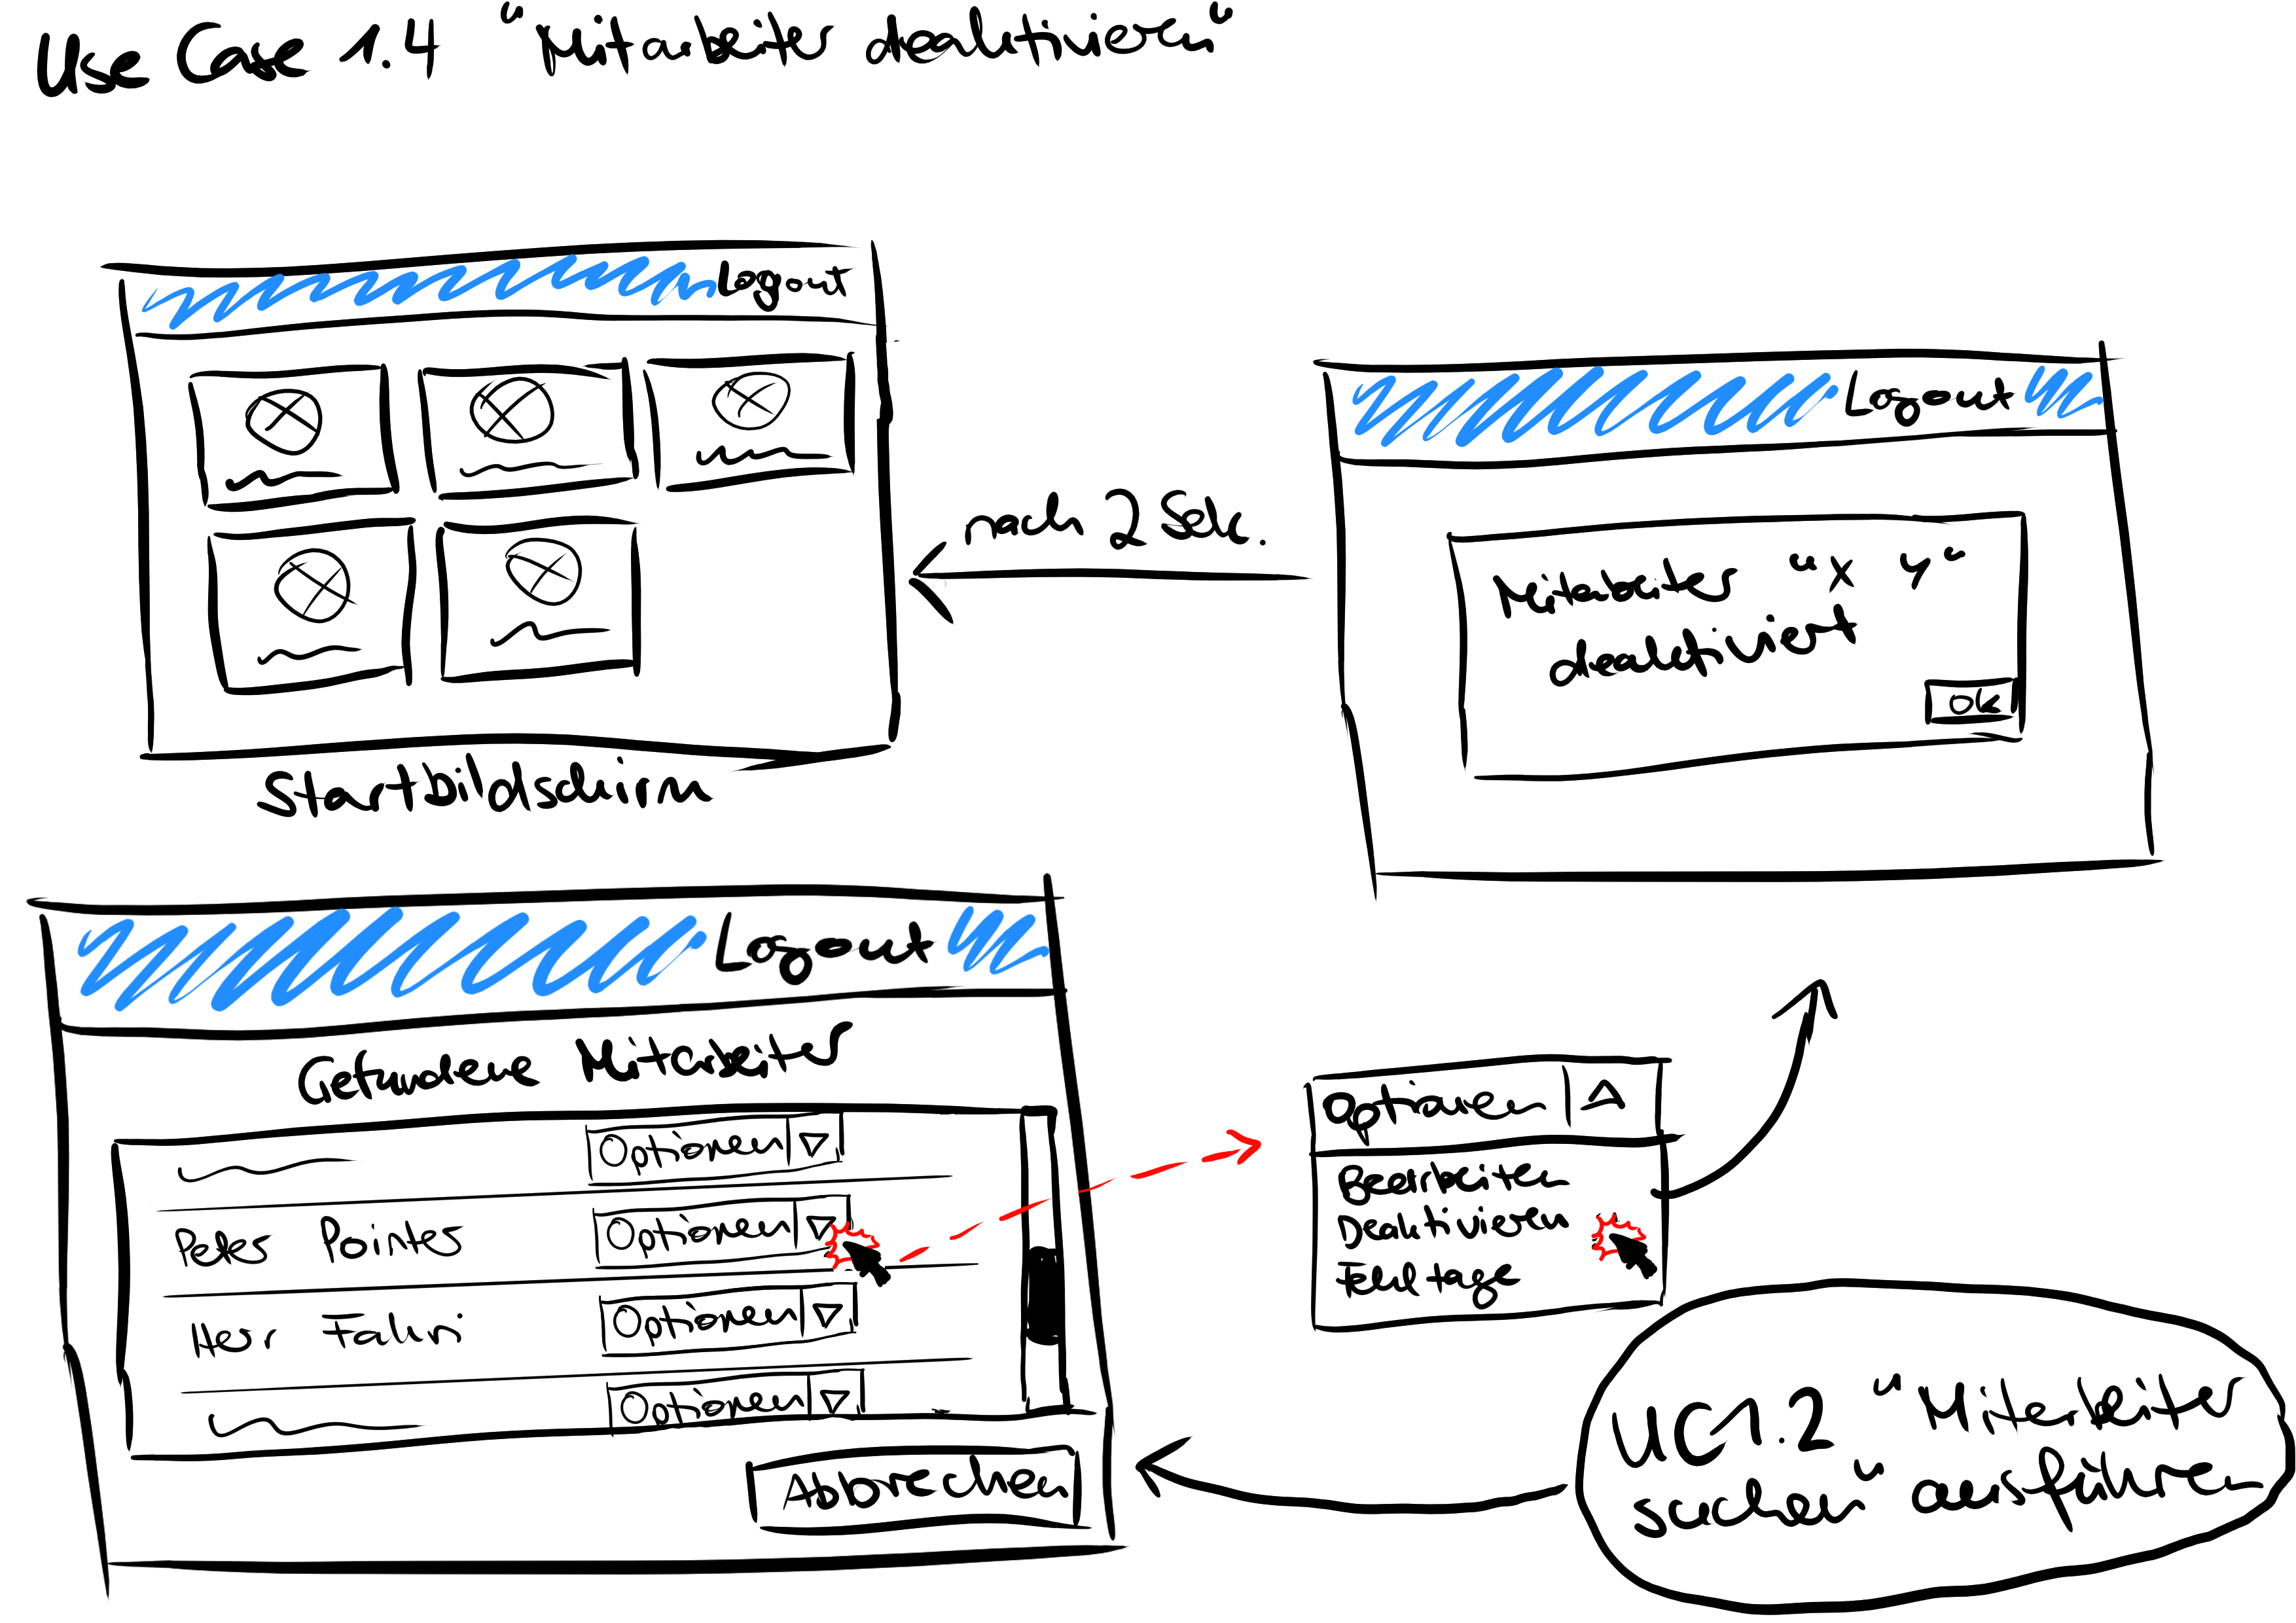 Use Case 1.4 "Mitarbeiter deaktivieren"
Logout
nach 2 Sek.
Startbildschirm
Logout
Mitarbeiter "X Y"
deaktiviert
OK
Logout
Gefundene Mitarbeiter
Optionen
Peter Pointer Optionen
Herr Fakiri Optionen
Optionen
Abbrechen
Optionen
Bearbeiten
Deaktivieren
Fehltage
UC 1.2 "Mitarbeiter
suchen" ausführen